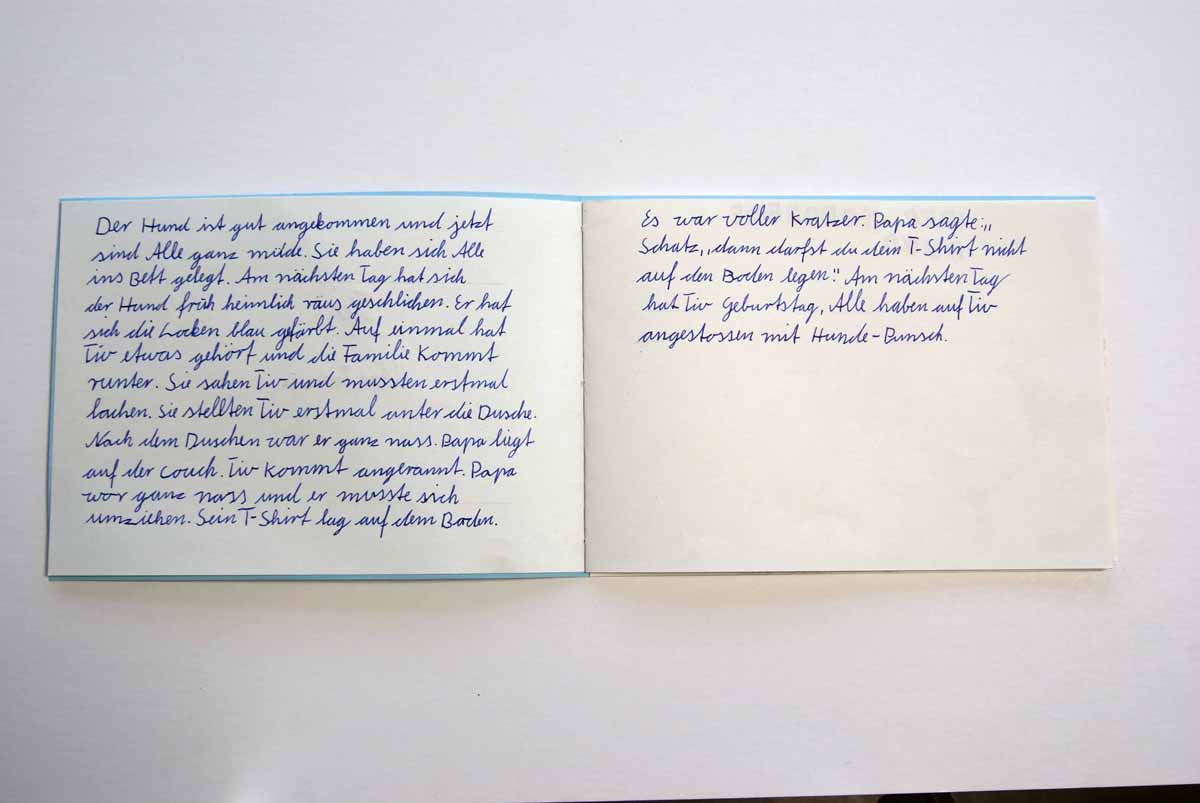 Der Hund ist gut angekommen und jetzt
sind Alle ganz müde. Sie haben sich Alle
ins Bett gelegt. Am nächsten Tag hat sich
der Hund früh heimlich raus geschlichen. Er hat
sich die Locken blau gefärbt. Auf einmal hat
Tiv etwas gehört und die Familie kommt
runter. Sie sahen Tiv und mussten erstmal
lachen. Sie stellten Tiv erstmal unter die Dusche.
Nach dem Duschen war er ganz nass. Papa liegt
auf der Couch. Tiv kommt angerannt. Papa
war ganz nass und er musste sich
umziehen. Sein T-Shirt lag auf dem Boden.
Es war voller Kratzer. Papa sagte:„
Schatz,„dann darfst du dein T-Shirt nicht
auf den Boden legen." Am nächsten Tag
hat Tiv Geburtstag, Alle haben auf Tiv
angestossen mit Hunde-Punsch.